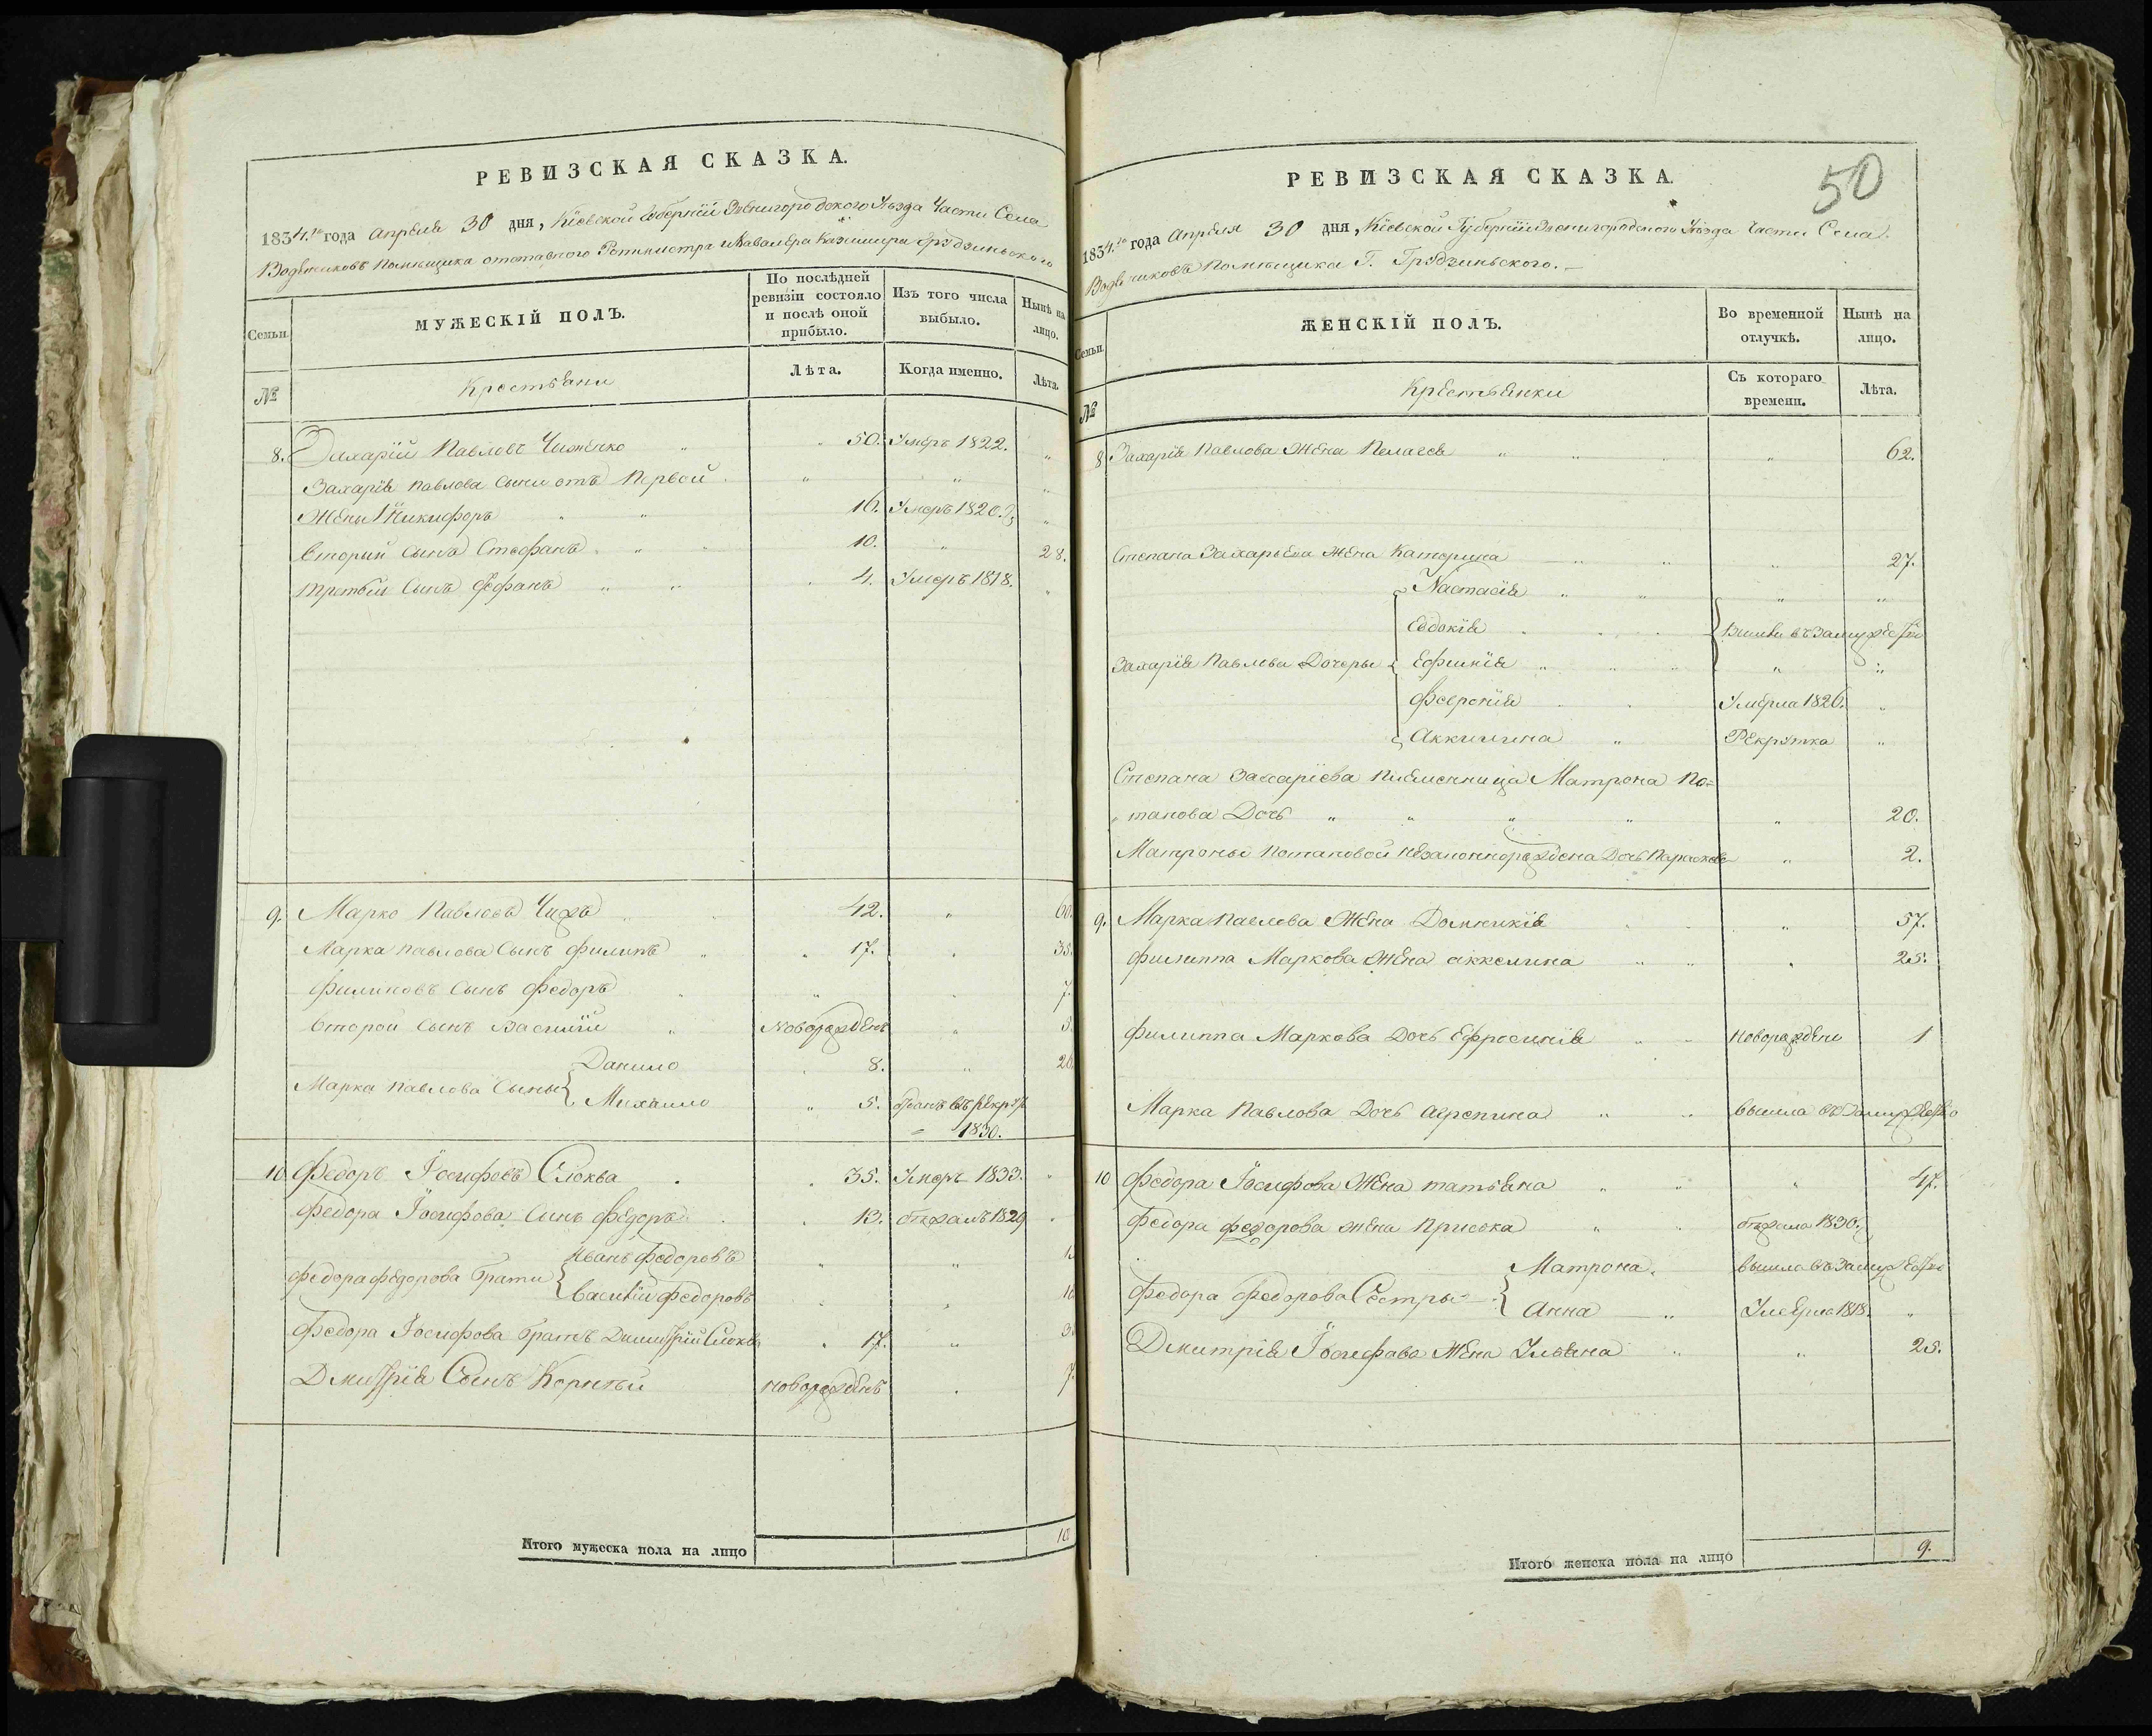 РЕВИЗСКАЯ СКАЗКА.
1834.го года Апреля 30 дня, Кіевской Губерніи Звенигородского Уезда Части Села
Водяниковъ Помещика отставного Ротмистра и Кавалера Казимира Грудзиньского
Семьи.
МУЖЕСКІЙ ПОЛЪ.
По послѣдней ревизіи состояло и послѣ оной прибыло.
Изъ того числа выбыло.
Нынѣ на лицо.
№
Крестьяни
Лѣта.
Когда именно.
Лѣта.
8. Захарій Павловъ Чиженко 50. Умеръ 1822.
Захарія Павлова Сыни отъ Первой
Жены 1й Никифоръ 16. Умеръ 1820.
Вторый Сынъ Стефанъ 10. 28.
третый Сынъ Фефанъ 4. Умеръ 1818.
9. Марко Павловъ Чижъ 42. 60.
Марка Павлова Сынъ Филипъ 17. 35.
Филиповъ Сынъ Федоръ 7.
Второй Сынъ Василій Новорожденъ
Марка Павлова Сыны { Данило 8. 26.
Михайло 5. Отданъ въ рекруты
1830.
10. Федоръ Іосифовъ Слюква 35. Умеръ 1833.
Федора Іосифова Синъ Федоръ 13. 1829
Федора Федорова Брати { Иванъ Федоровъ
Василій Федоровъ
Федора Іосифова Братъ Димитрій Слюква 17.
Дмитрія Сынъ Корнѣй новорожденъ 7.
Итого мужеска пола на лицо
РЕВИЗСКАЯ СКАЗКА.
50
1834.го года Апреля 30 дня, Кіевской Губерніи Звенигородского Уезда Части Села
Водяниковъ Помещика Г. Грудзиньского.
Семьи.
ЖЕНСКІЙ ПОЛЪ.
Во временной отлучкѣ.
Нынѣ на лицо.
№
Крестьянки
Съ котораго времени.
Лѣта.
8 Захарія Павлова Жена Пелагея 62.
Степана Захарьева жена Катерина 27.
Настасія
Евдокія Вишли въ Замужество
Захарія Павлова Дочеры { Ефимія
Февронія Умерла 1826.
Аккилина Рекрутка
Степана Захаріева племенница Матрона По=
тапова Дочь 20.
Матроны Потаповой незаконнорожденна Дочь Параскева 2.
9. Марка Павлова Жена Домникія 57.
Филиппа Маркова Жена Аккелина 25.
Филиппа Маркова Дочь Ефросинія новорождена 1
Марка Павлова Дочь Агрепина вышла въ Замужество
10 Федора Іосифова Жена татьяна 47.
Федора Федорова жена Приська 1830.
Федора Федорова Сестры { Матрона вышла въ Замужество
Анна Умерла 1818.
Дмитрія Іосифова Жена Ульяна 25.
Итого женска пола на лицо 9.